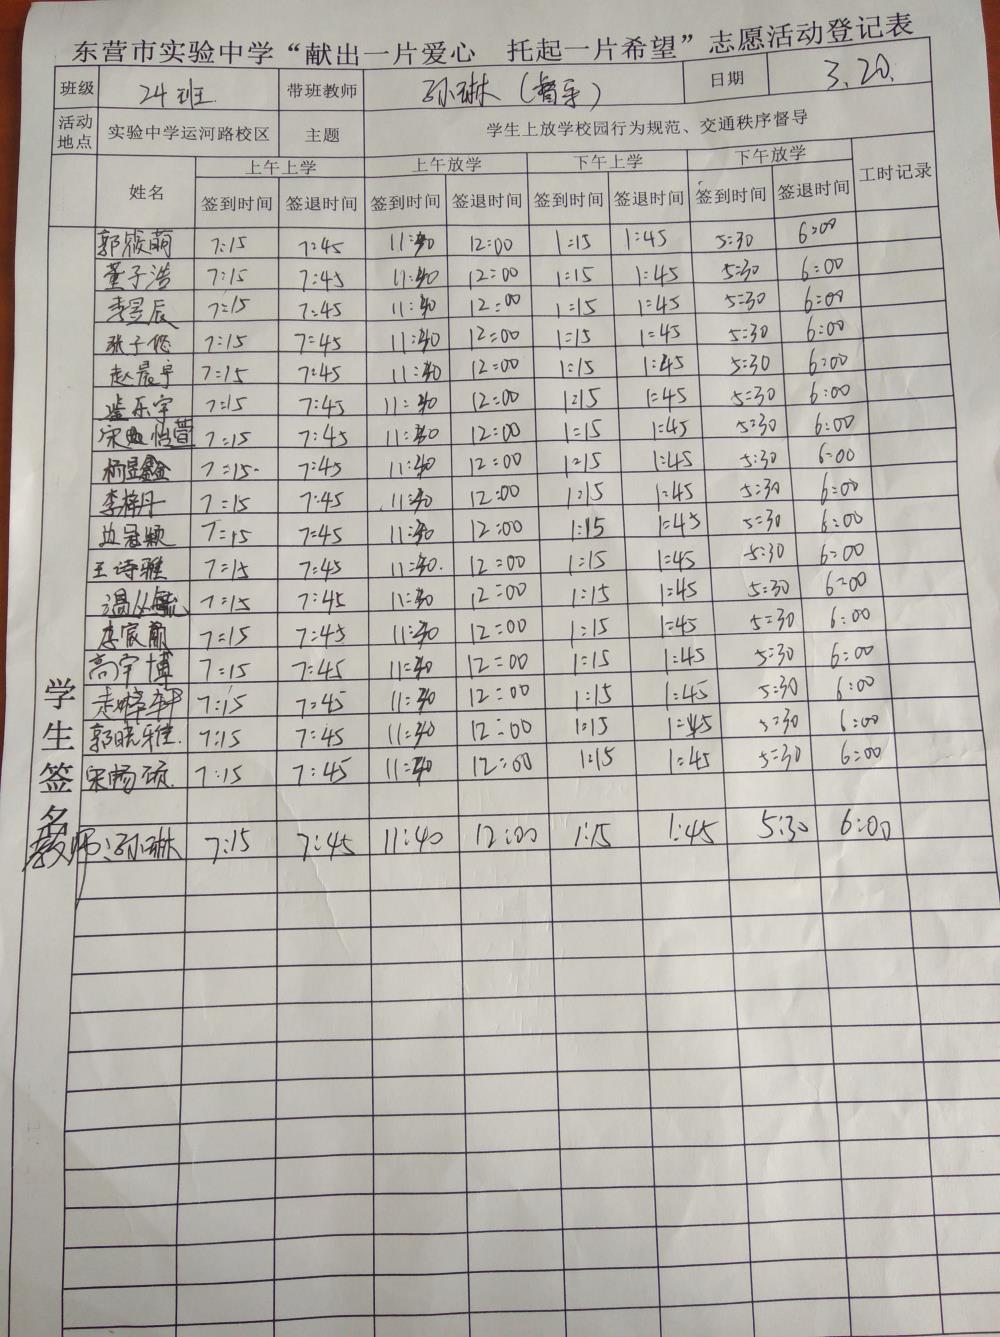 东营市实验中学“献出一片爱心 托起一片希望”志愿活动登记表
班级 24班. 带班教师 孙琳 日期 3.20.
活动地点 实验中学运河路校区 主题 学生上放学校园行为规范、交通秩序督导
姓名 上午上学 上午放学 下午上学 下午放学 工时记录
签到时间 签退时间 签到时间 签退时间 签到时间 签退时间 签到时间 签退时间
学生签名
郭筱萌 7:15 7:45 11:40 12:00 1:15 1:45 5:30 6:00
董子浩 7:15 7:45 11:40 12:00 1:15 1:45 5:30 6:00
李昱辰 7:15 7:45 11:40 12:00 1:15 1:45 5:30 6:00
张子悠 7:15 7:45 11:40 12:00 1:15 1:45 5:30 6:00
赵晨宇 7:15 7:45 11:40 12:00 1:15 1:45 5:30 6:00
7:15 7:45 11:40 12:00 1:15 1:45 5:30 6:00
7:15 7:45 11:40 12:00 1:15 1:45 5:30 6:00
杨昱鑫 7:15 7:45 11:40 12:00 1:15 1:45 5:30 6:00
李梓丹 7:15 7:45 11:40 12:00 1:15 1:45 5:30 6:00
7:15 7:45 11:40 12:00 1:15 1:45 5:30 6:00
王诗雅 7:15 7:45 11:40 12:00 1:15 1:45 5:30 6:00
7:15 7:45 11:40 12:00 1:15 1:45 5:30 6:00
7:15 7:45 11:40 12:00 1:15 1:45 5:30 6:00
高宇博 7:15 7:45 11:40 12:00 1:15 1:45 5:30 6:00
7:15 7:45 11:40 12:00 1:15 1:45 5:30 6:00
郭晓雅. 7:15 7:45 11:40 12:00 1:15 1:45 5:30 6:00
宋畅硕. 7:15 7:45 11:40 12:00 1:15 1:45 5:30 6:00
教师:孙琳 7:15 7:45 11:40 12:00 1:15 1:45 5:30 6:00